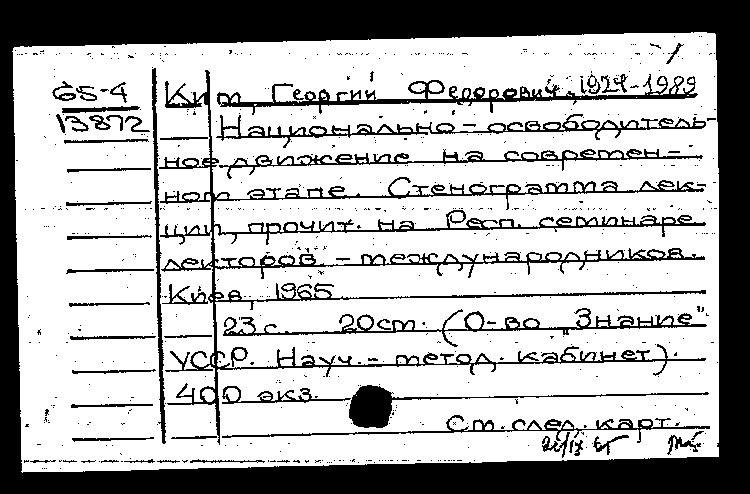 65-4
13872
Ким, Георгий Федорович, 1924-1989
Национально-освободитель-
ное движение на современ-
ном этапе. Стенограмма лек-
ции, прочит. на Респ. семинаре
лекторов-международников.
Киев, 1965
23 с. 20 см. (О-во „Знание"
УССР. Науч.-метод. кабинет).
400 экз.
См. след. карт.